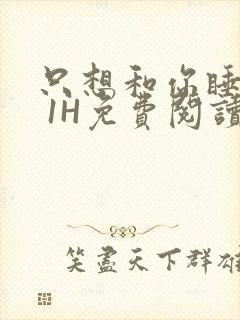 只想和你睡
1H免費閱讀
笑盡天下群雄